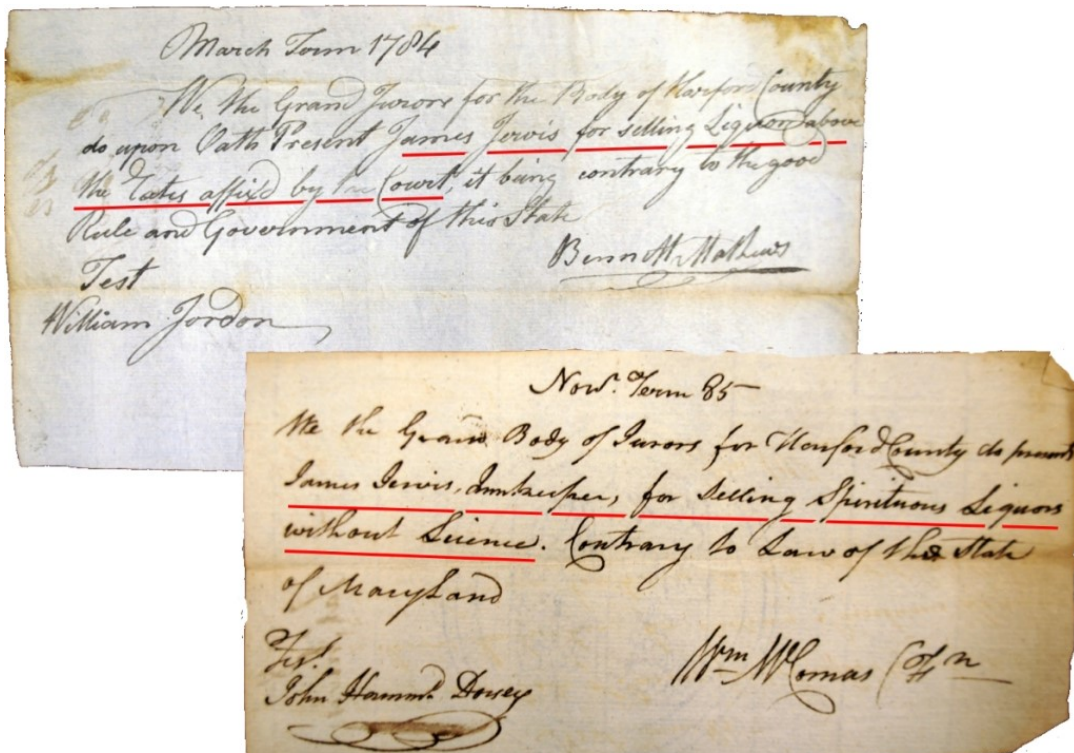 March Term 1784
We the Grand Jurors for the Body of Harford County
do upon Oath Present James Jervis for selling Liquors above
the Rates affixd by the Court, it being contrary to the good
Rule and Government of this State
Bennett Mathews
Test
William Jordon
Novr. Term 85
We the Grand Body of Jurors for Harford County do present
James Jervis, Innkeeper, for Selling Spirituous Liquors
without Licence. Contrary to Law of the State
of Maryland
Test
John Hammd. Dorsey
Wm McComas